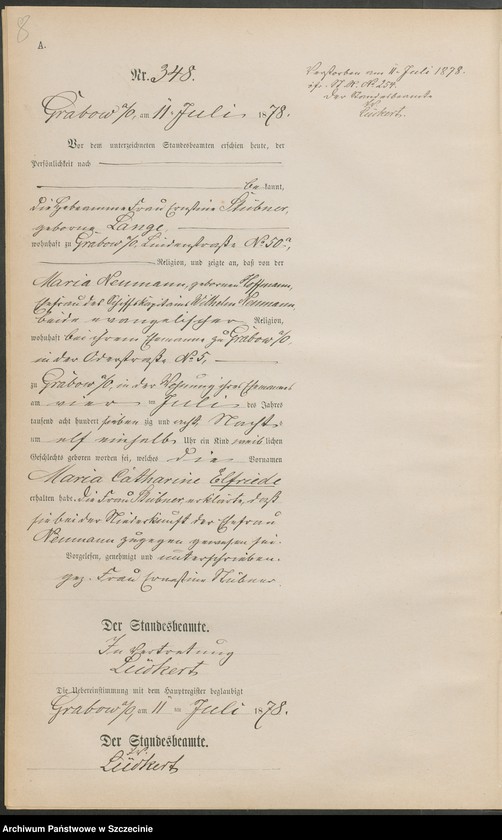 8
A.
Nr. 348.
Grabow a/O, am 11 Juli 1878.
Vor dem unterzeichneten Standesbeamten erschien heute, der
Persönlichkeit nach
bekannt,
die Hebeamme Frau Ernstine Stübner,
geborne Lange,
wohnhaft zu Grabow a/O, Lindenstraße No 50a,
Religion, und zeigte an, daß von der
Maria Neumann, gebornen Hoffmann,
Ehefrau des Schiffskapitains Wilhelm Neumann,
beide evangelischer Religion,
wohnhaft bei ihrem Ehemanne zu Grabow a/O,
in der Oderstraße No 5,
zu Grabow a/O, in der Wohnung ihres Ehemannes
am vier ten Juli des Jahres
tausend acht hundert sieben zig und acht Nachts
um elf einhalb Uhr ein Kind weiblichen
Geschlechts geboren worden sei, welches die Vornamen
Maria Catharine Elfriede
erhalten habe. Die Frau Stübner erklärte, daß
sie bei der Niederkunft der Ehefrau
Neumann zugegen gewesen sei.
Vorgelesen, genehmigt und unterschrieben.
gez. Frau Ernstine Stübner.
Der Standesbeamte.
In Vertretung
Lüdkert
Die Uebereinstimmung mit dem Hauptregister beglaubigt
Grabow a/O, am 11 ten Juli 1878.
Der Standesbeamte.
Lüdkert
Verstorben am 11. Juli 1878.
No 254.
Der Standesbeamte
Lüdkert.
Archiwum Państwowe w Szczecinie